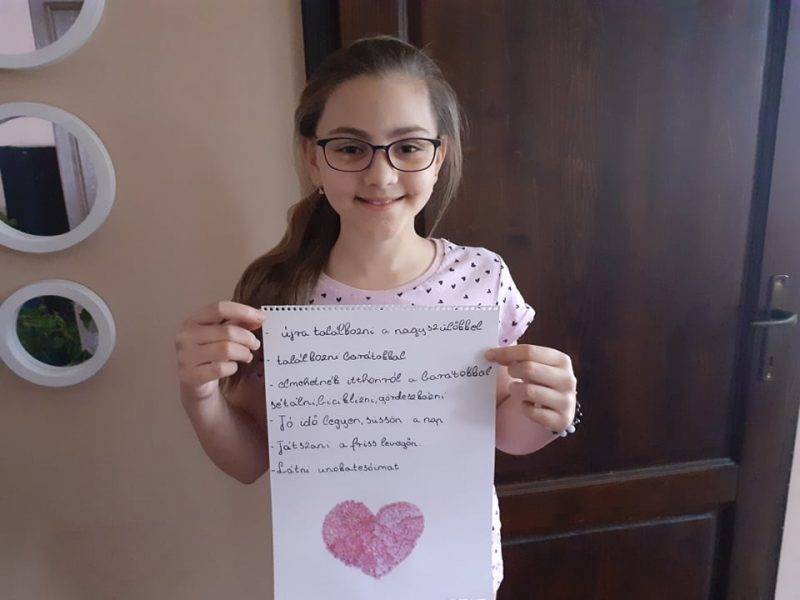 - újra találkozni a nagyszülőkkel
- találkozni barátokkal
- elmehetnék itthonról a barátokkal
sétálni, biciklizni, gördeszkázni
- Jó idő legyen, süssön a nap
- Játszani a friss levegőn.
- Látni unokatesóimat